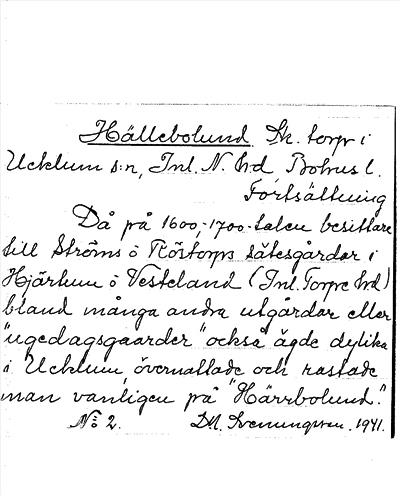 Hällebolund Sk. torp i
Ucklum s:n, Inl. N. hd, Bohus l.
Fortsättning
Då på 1600,-1700-talen besittare
till Ströms ö Röstorps sätesgårdar i
Hjärtum ö Vesteland (Inl. Torpe hd)
bland många andra utgårdar eller
"ugedagsgaarder" också ägde dylika
i Ucklum, övernattade och rastade
man vanligen på "Härrbolund."
No 2. D.M. Svenungsson. 1941.